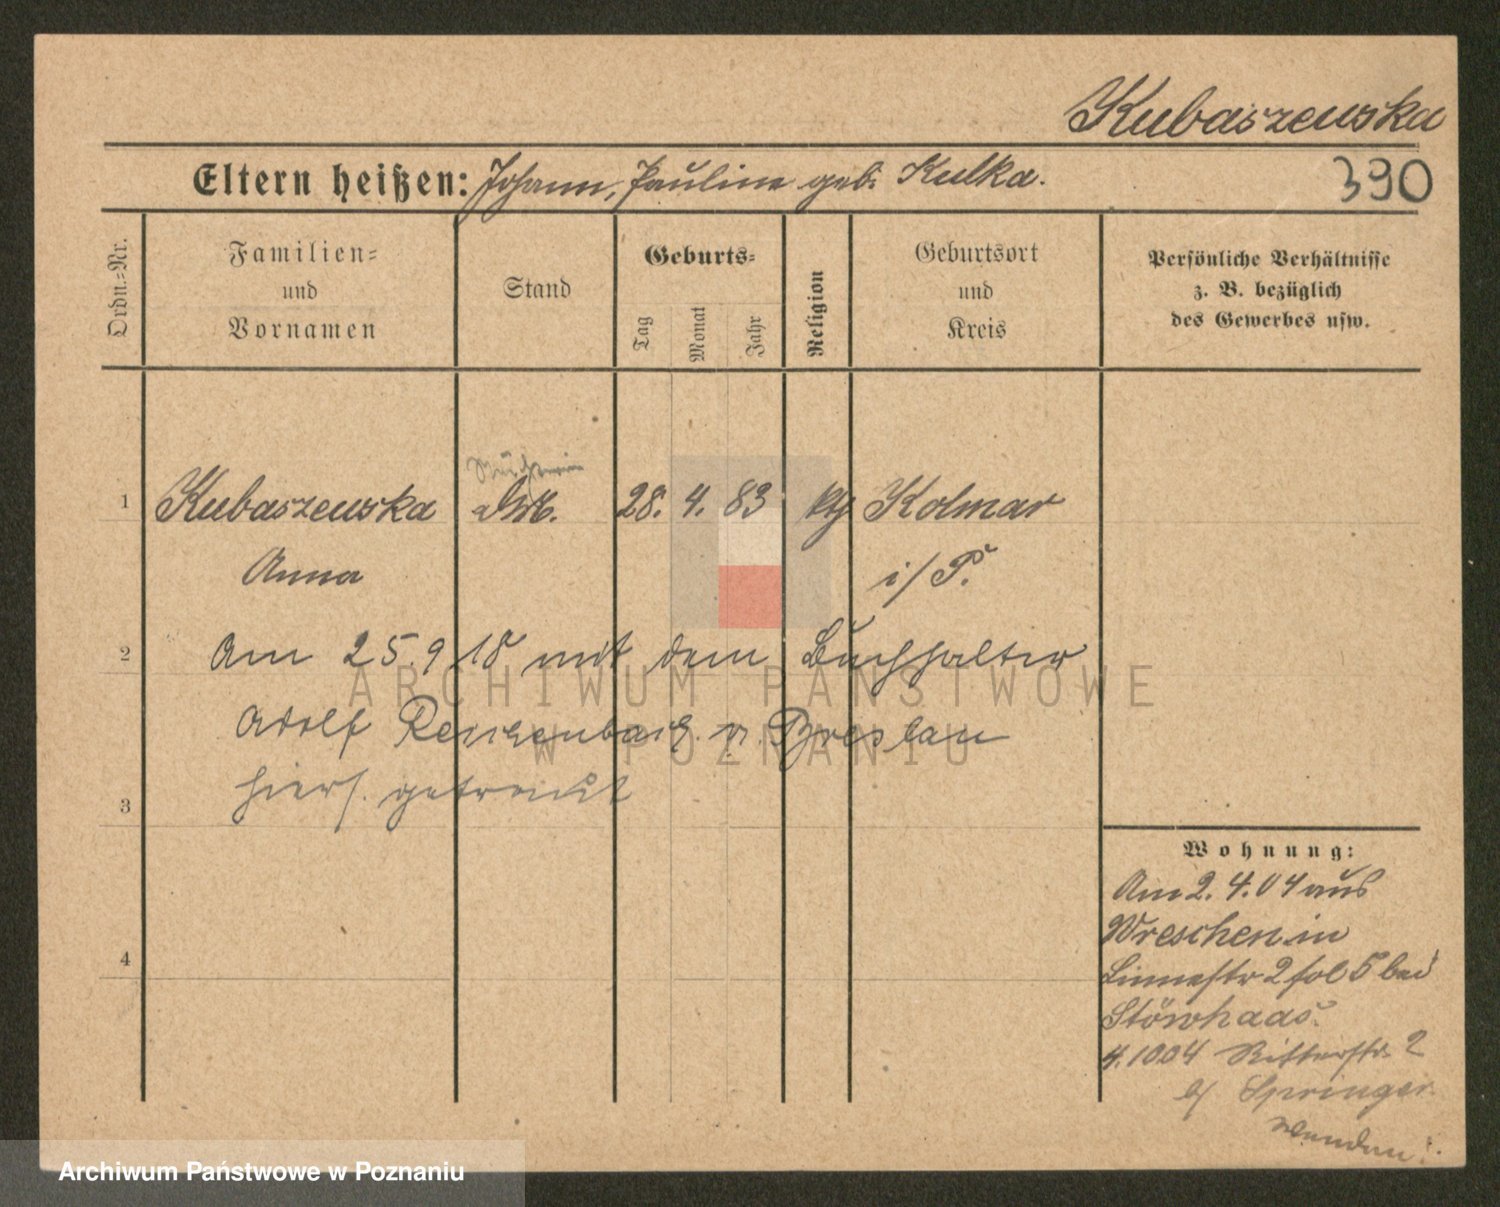 Kubaszewska
Eltern heißen: Johann, Pauline geb. Kulka.
390
Ordn.=Nr.
Familien=
und
Vornamen
Stand
Geburts=
Tag
Monat
Jahr
Religion
Geburtsort
und
Kreis
Persönliche Verhältnisse
z. B. bezüglich
des Gewerbes usw.
1 Kubaszewska 28. 4. 83 kth Kolmar
Anna i/P.
2 Am 25.9 18 mit dem Buchhalter
Adolf Reichenbach in Breslau
3 hiers. getraut
4
Wohnung:
Am 2. 4. 04 aus
Wreschen in
2 bei
4.10 04 Ritterstr. 2
b/ Springer
wenden!
ARCHIWUM PAŃSTWOWE
W POZNANIU
Archiwum Państwowe w Poznaniu